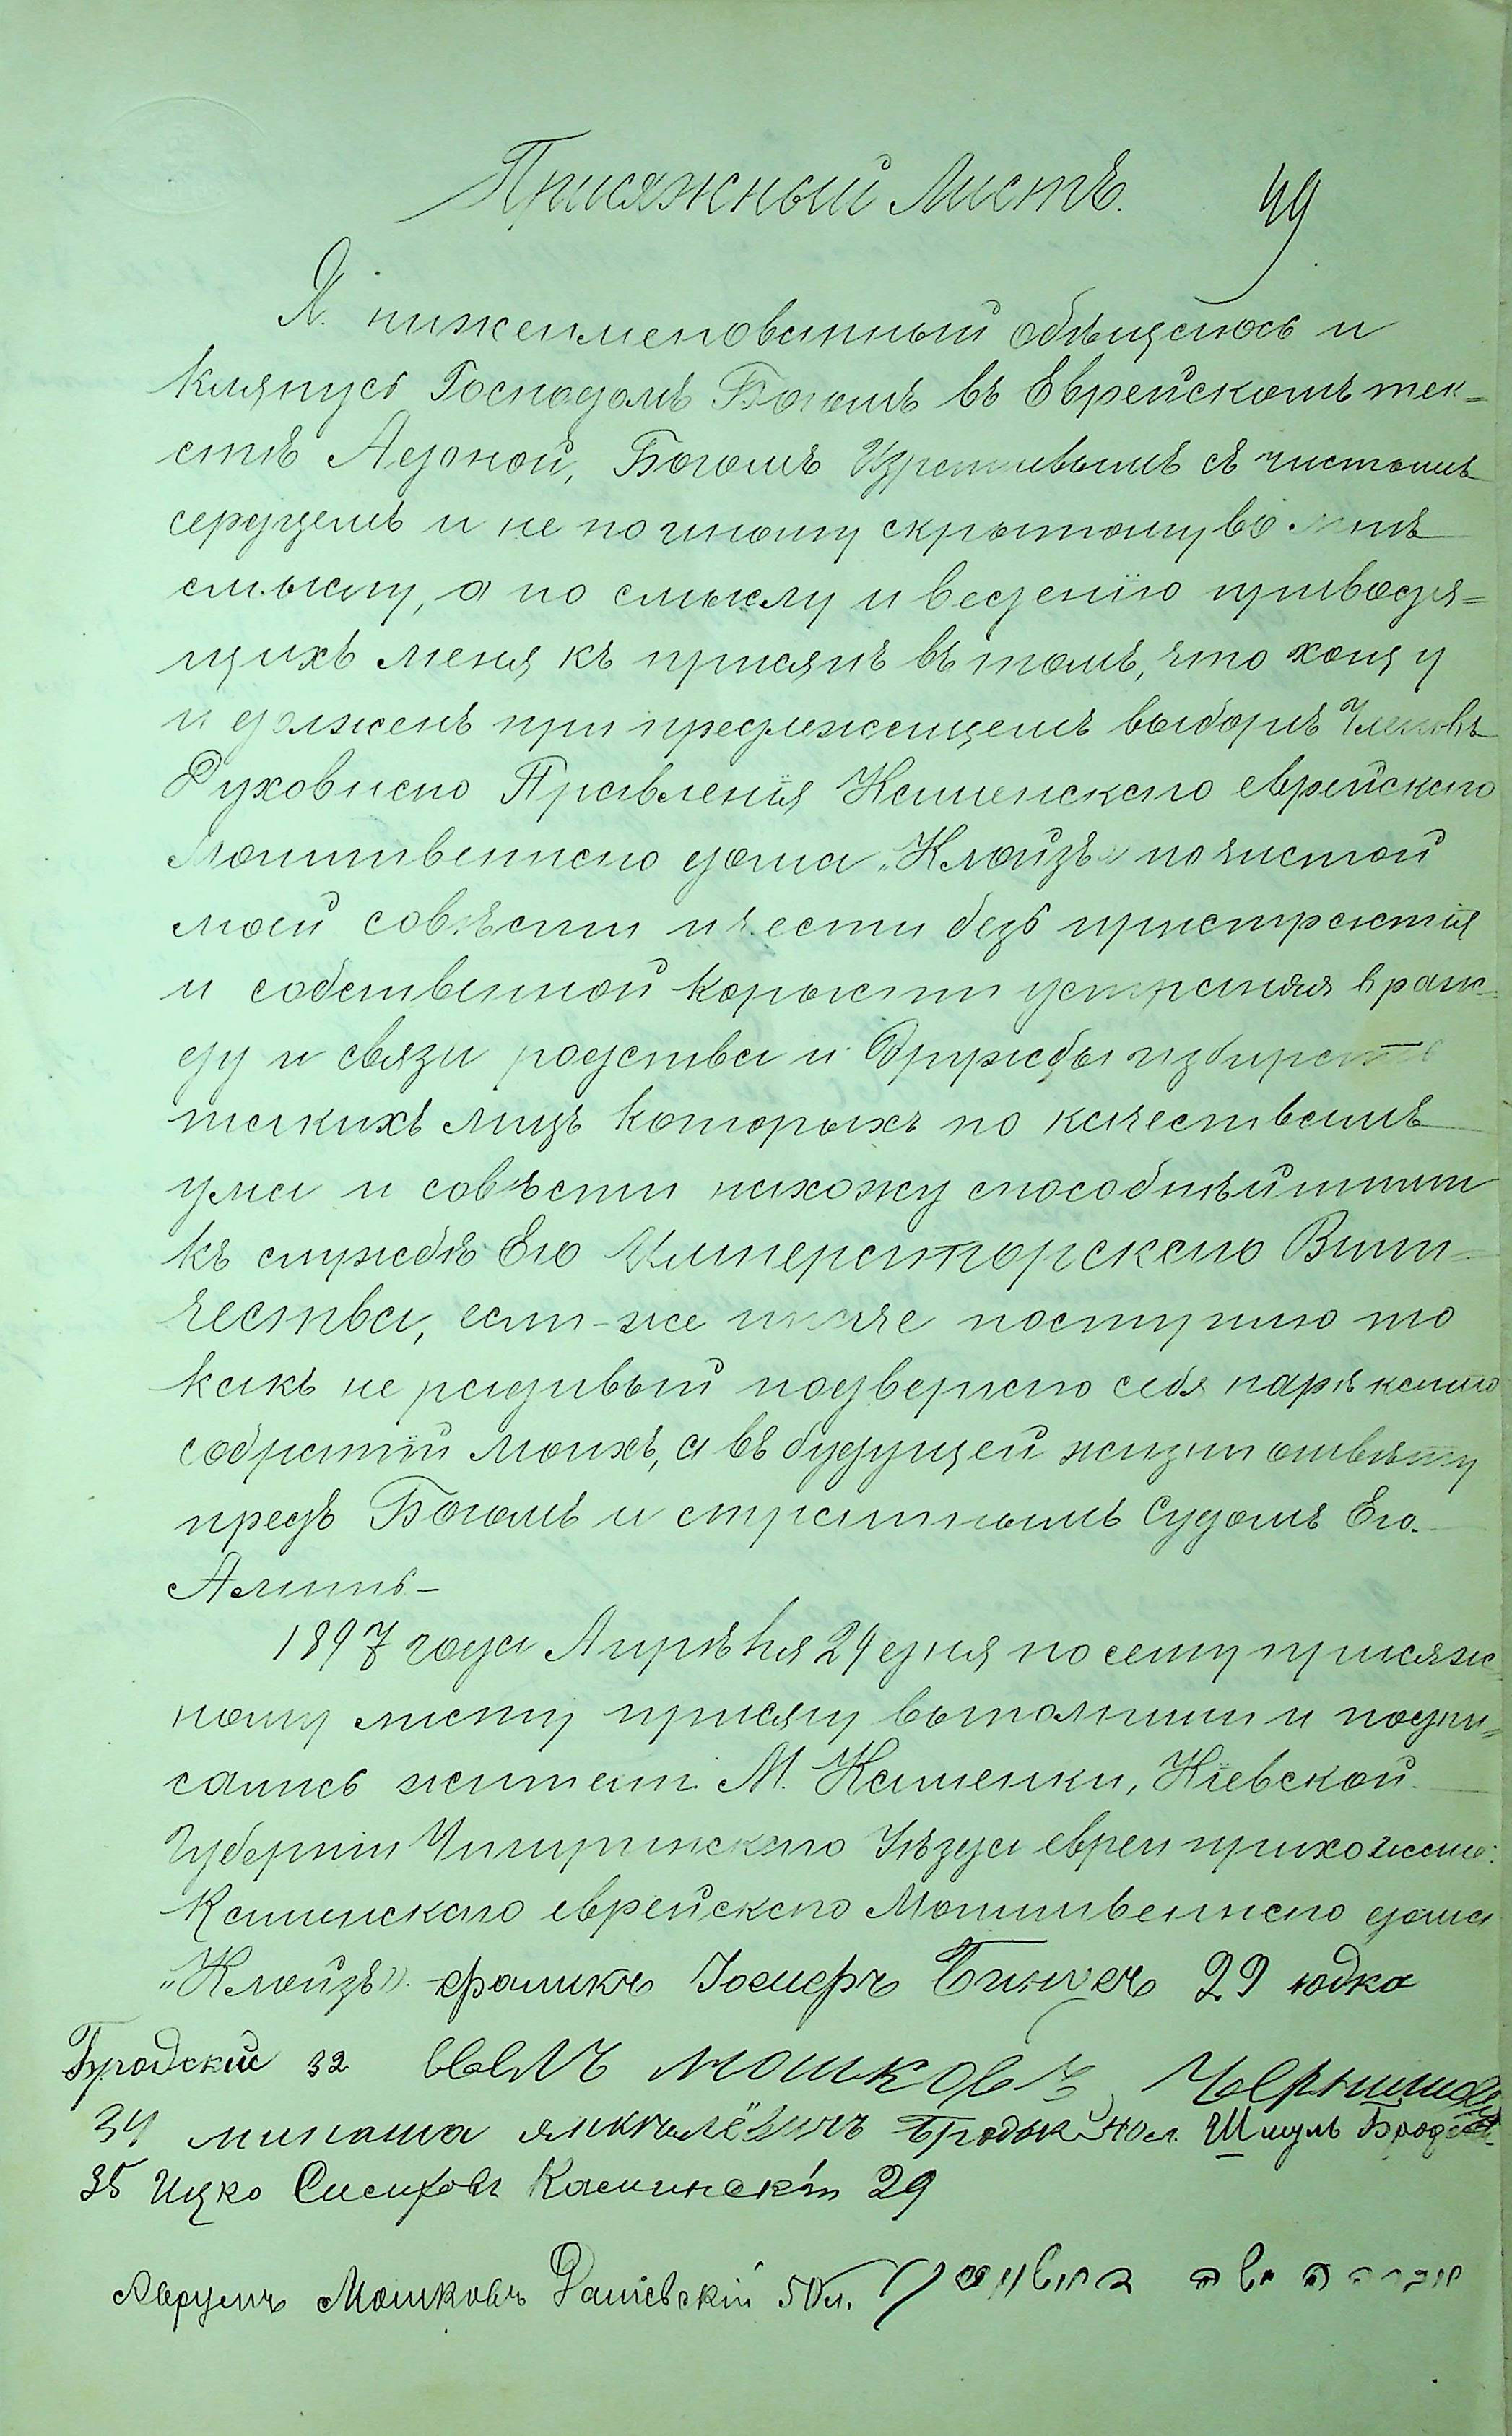 Присяжный Листъ. 49
Я. нижеименованный обѣщаюсь и
клянусь Господомъ Богомъ въ Еврейскомъ тек-
стѣ Адоной, Богомъ Израилевымъ съ чистымъ
сердцемъ и не по иному скрытому во мнѣ
смыслу, а по смыслу и ведению приводя-
щихъ меня къ присягѣ въ томъ, что хощу
и долженъ при предлежащемъ выборѣ Членовъ
Духовнаго Правленія Каменскаго еврейскаго
Молитвеннаго дома „Клойзъ" по чистой
моей совѣсти и чести безъ пристрастія
и собственной корысти устраняя враж-
ду и связи родства и дружбы избирать
такихъ лицъ которыхъ по качествамъ
ума и совѣсти нахожу способнѣйшими
къ службѣ Его Императорскаго Вели-
чества, если-же иначе поступлю то
какъ не радивый подвергаю себя нарѣканию
собратій моихъ, а въ будущей жизни отвѣту
предъ Богомъ и страшнымъ Судомъ Его.
Аминь-
1897 года Апрѣля 29 дня по сему присяж
ному листу присягу выполнили и подпи-
сались жители М. Каменки, Кіевской
Губерніи Чигиринскаго Уѣзда евреи прихожане
Каменскаго еврейскаго Молитвеннаго дома
„Клойзъ". Фроликъ 29 юдко
Бродский 32 мошковъ
34 Бродск 40 л. Шмуль
35 Ицко Каминскій 29
Аврумъ Мошковъ 50 л.